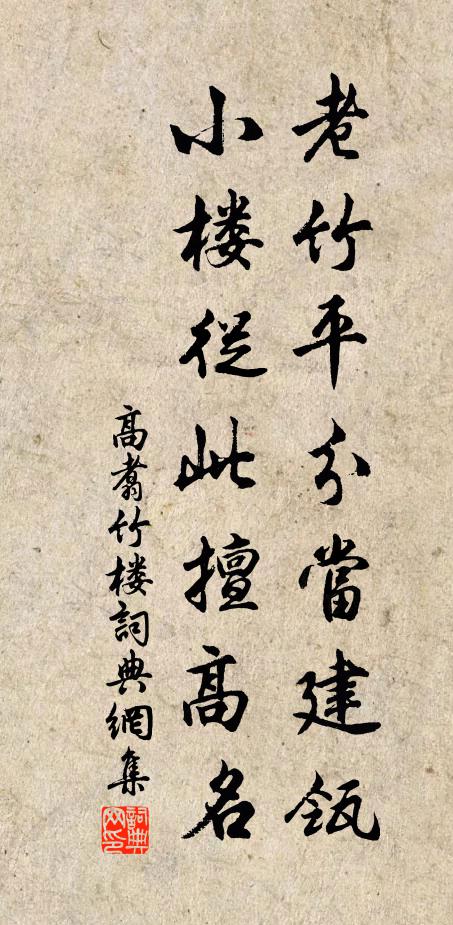 老竹平分當建瓴
小楼從此擅高名
高翥竹楼詞典網集
詞典網印